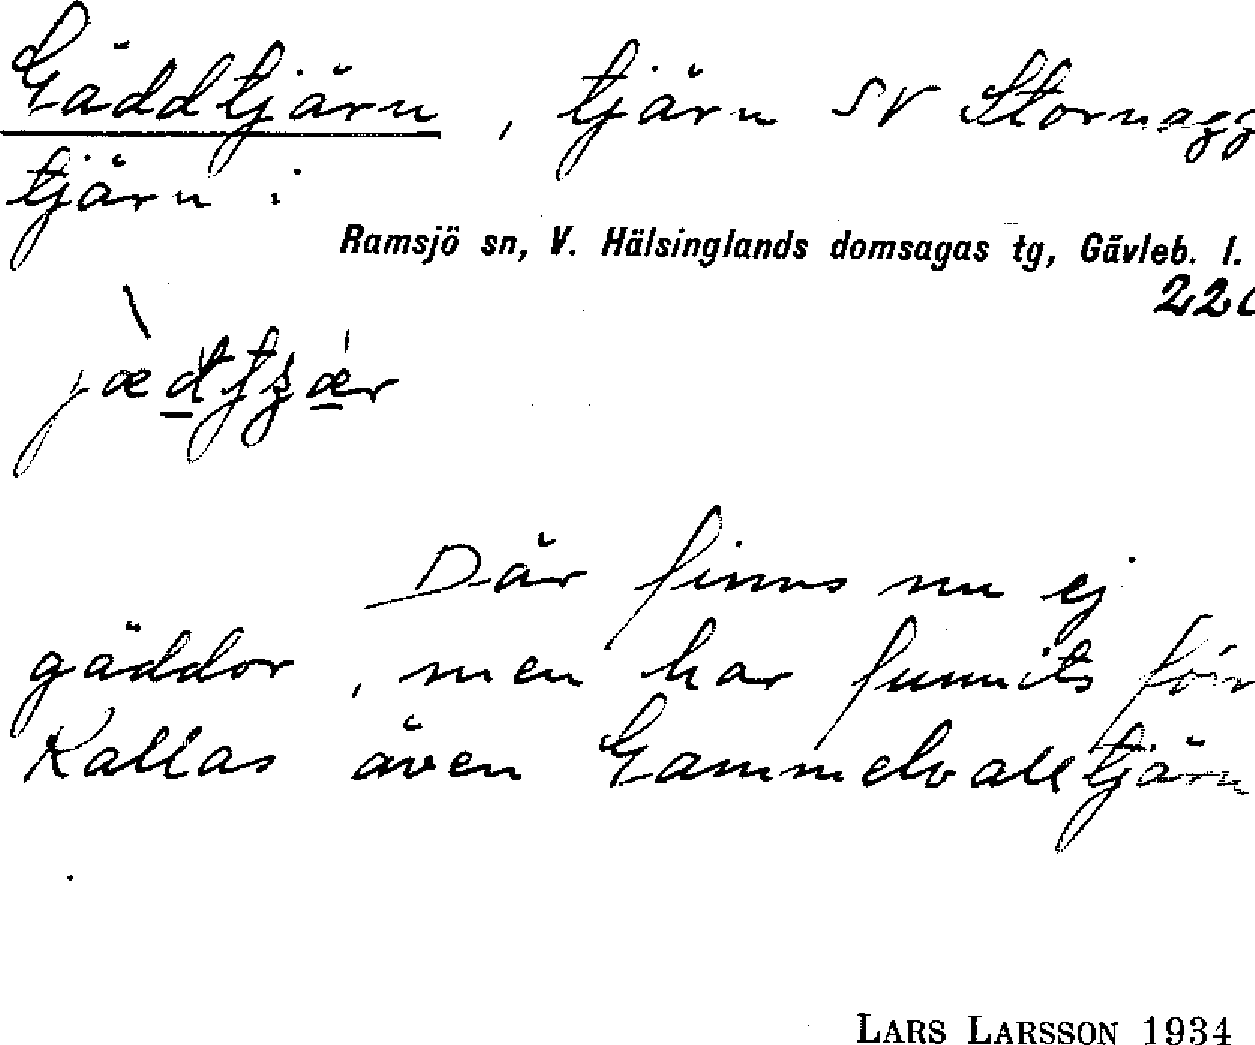 Gäddtjärn, tjärn SV Stornagg
tjärn i
Ramsjö sn, V. Hälsinglands domsagas tg, Gävleb. l.
220
Där finns nu ej
gäddor, men har funnits förr
Kallas även Gammelvalltjärn
LARS LARSSON 1934